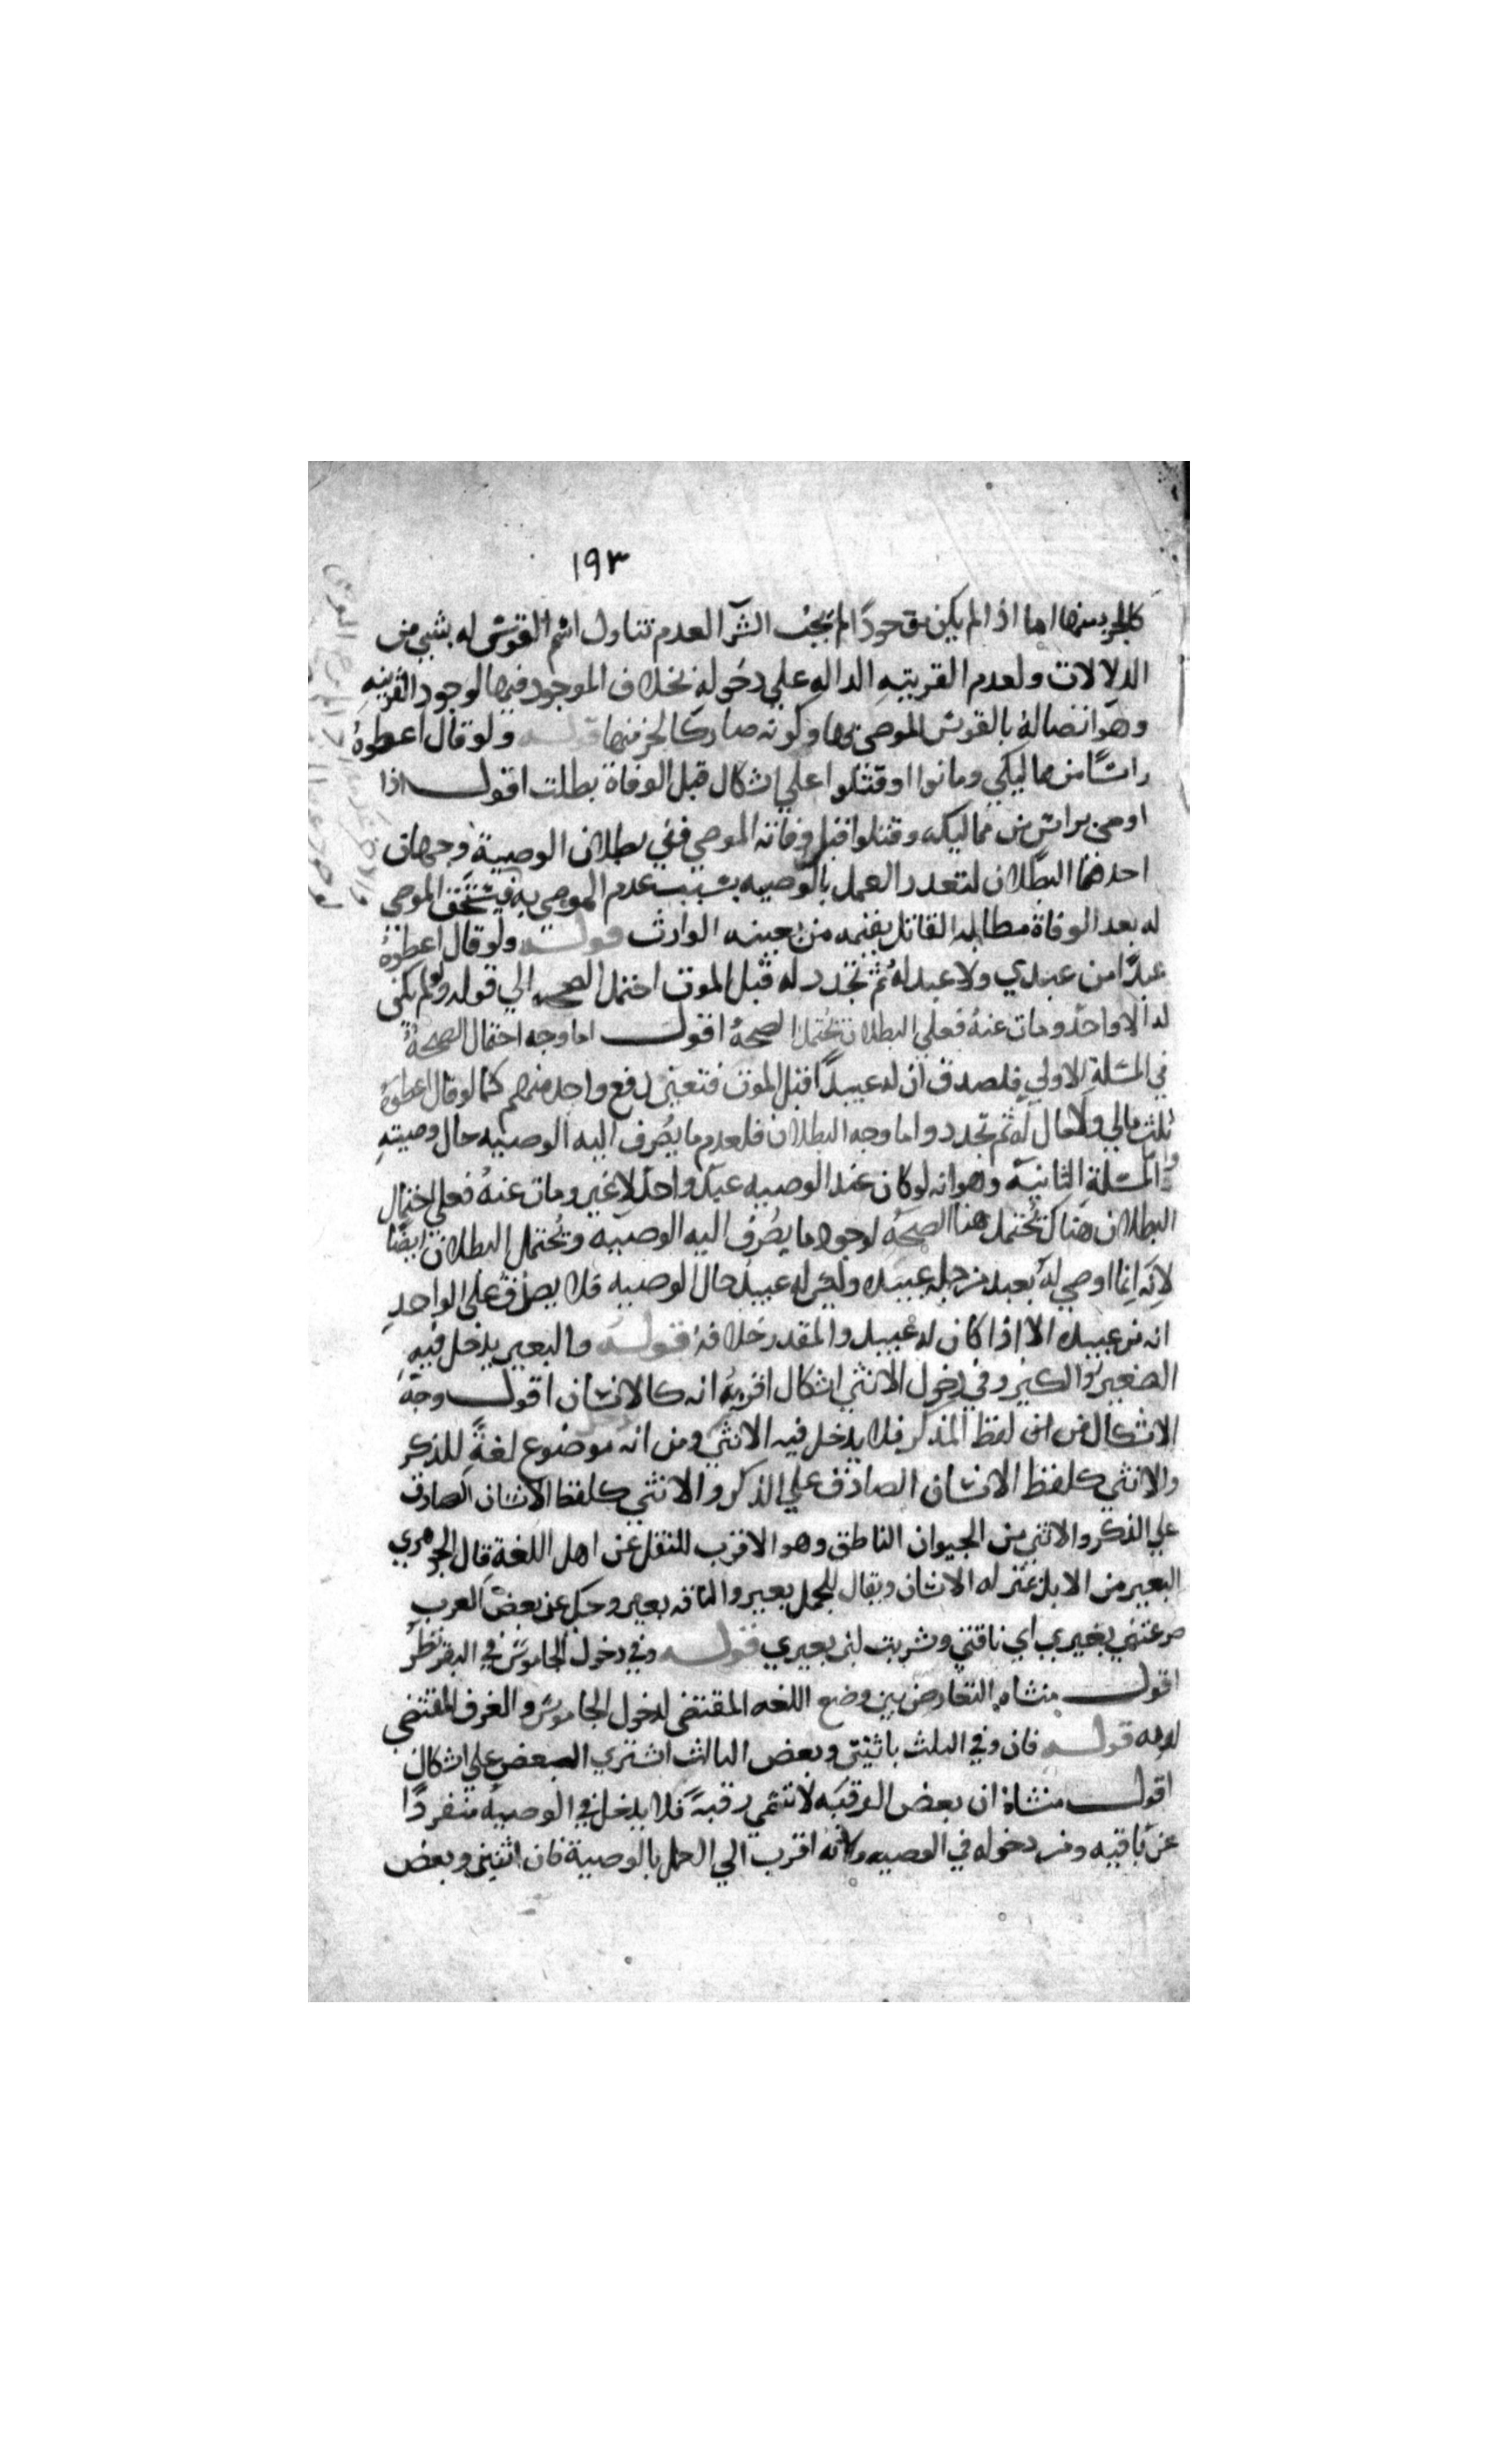 ١٩٣
كالجزء منها اما اذا لم يكن موجودًا لم يجب الشرآ لعدم تناول اسم القوس له بشي من
الدلالات ولعدم القرينة الدالة علي دخوله بخلاف الموجود فيها لوجود القرينه
وهو اتصاله بالقوس الموصي بها وكونه صار كالجزء منها قوله ولو قال اعطوهُ
راسًا من مماليكي وماتوا او قتلوا علي اشكال قبل الوفاة بطلت اقول اذا
اوصي براس من مماليكه وقتلوا قبل وفاته الموصي ففي بطلان الوصية وجهان
احدهما البطلان لتعدر العمل بالوصيه بسبب عدم الموصي به فيستحق الموصي
له بعد الوفاة مطالبه القاتل بقيمه من يعينه الوارث قوله ولو قال اعطوهُ
عبدًا من عبيدي ولا عبد له ثم تجدد له قبل الموت احتمل الصحه الي قوله ولو لم يكن
له الا واحد ومات عنهُ فعلي البطلان تحتمل الصحهُ اقول اما وجه احتمال الصحةُ
في المسئلة الاولي فلصدق ان له عبيدًا قبل الموت فتعين دفع واحد منهم كما لو قال اعطوهُ
ثلث مالي ولا مال له ثم تجدد واما وجه البطلان فلعدم ما يصرف اليه الوصيه حال وصيته
واما المسئلة الثانيه وهو انه لو كان عند الوصيه عبد واحد لا غير ومات عنهُ فعلي احتمال
البطلان هناك تحتمل هنا الصحهُ لوجود ما يصرف اليه الوصيه وتحتمل البطلان ايضًا
لانه انما اوصي له بعبد من جمله عبيده وليس له عبيد حال الوصيه فلا يصدق علي الواحدِ
انه من عبيده الا اذا كان له عبيد والمقدر خلافهُ قوله والبعير يدخل فيهِ
الصغير والكبير وفي دخول الانثي اشكال اقربهُ انه كالانسان اقول وجه
الاشكال من ان لفظ المذكر فلا يدخل فيه الانثي ومن انه موضوع لغةً للذكر
والانثي كلفظ الانسان الصادق علي الذكر والانثي كلفظ الانسان الصادق
علي الذكر والانثي من الحيوان الناطق وهو الاقرب للنقل عن اهل اللغة قال الجوهري
البعير من الابل بمنزله الانسان ويقال للجمل بعير والناقه بعير وحكي عن بعض العرب
صرعتني بعيري اي ناقتي وشربت لبن بعيري قوله وفي دخول الجاموس في البقر نظرٌ
اقول منشاه التعارض بين وضع اللغه المقتضي لدخول الجاموس والعرف المقتضي
لعدمه قوله فان وفي الثلث باثنين وبعض الثالث اشتري البعض علي اشكال
اقول منشاهُ ان بعض الرقبه لا تسمي رقبةً فلا يدخل في الوصيه منفردًا
عن باقيه ومن دخوله في الوصيه ولانه اقرب الي العمل بالوصية فان اثنين وبعض